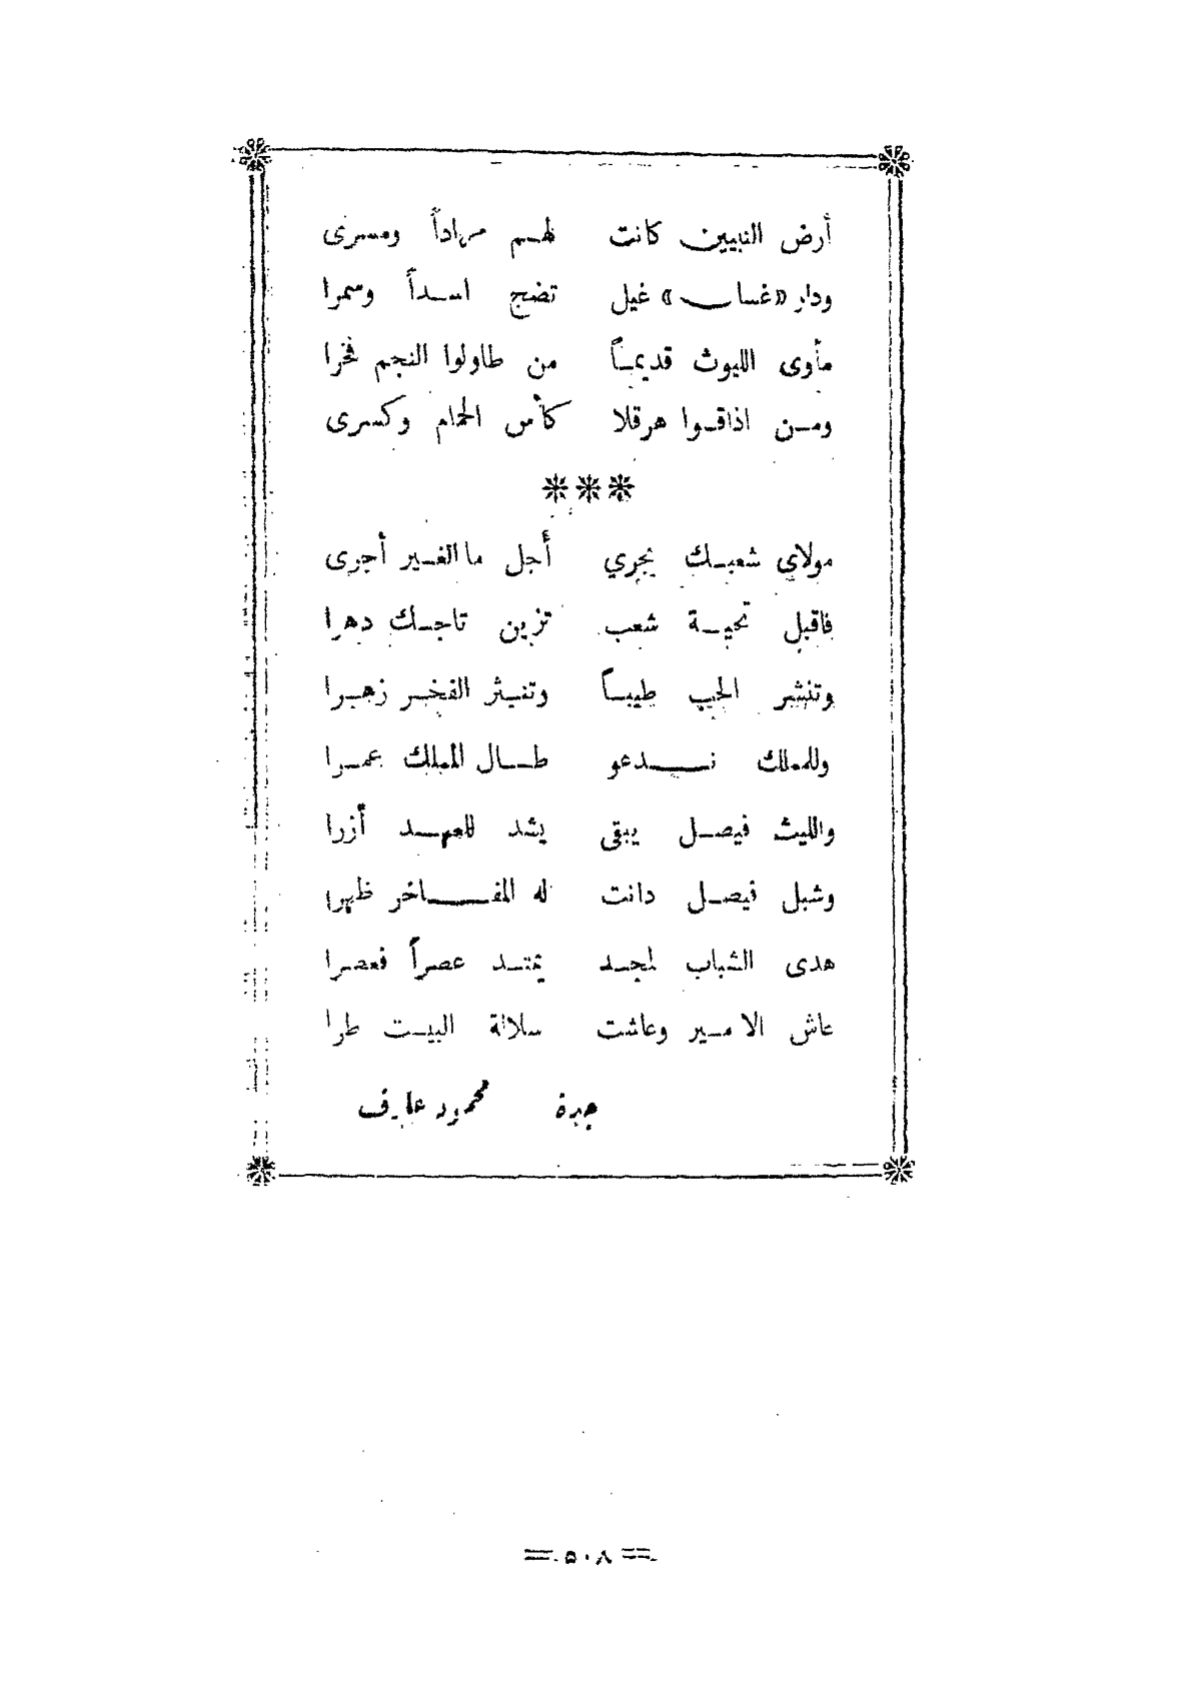 أرض النبيين كانت لهم مراداً ومسرى
ودار «غسان» غيل تضج اسداً وسمرا
مأوى الليوث قديماً من طاولوا النجم فخرا
ومن اذاقوا هرقلا كأس الحمام وكسرى
***
مولاي شعبك يجري أجل ما الغير أجرى
فاقبل تحية شعب تزين تاجك دهرا
وتنشر الحب طيباً وتنثر الفخر زهرا
وللملك ندعو طال المليك عمرا
والليث فيصل يبقى يشد للعهد أزرا
وشبل فيصل دانت له المفاخر ظهرا
هدى الشباب لمجد يمتد عصراً فعصرا
عاش الامير وعاشت سلالة البيت طرا
جدة محمود عارف
= ٥٠٨ =